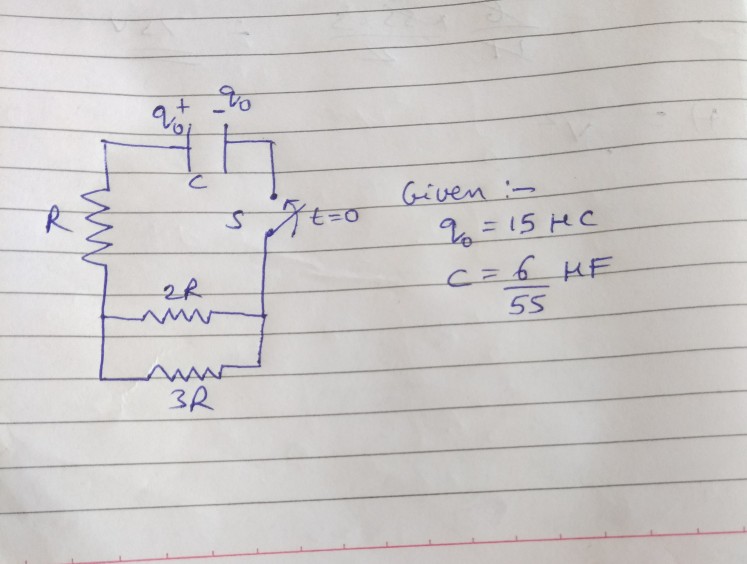 q₀+ -q₀
C
R
S t=0
2R
3R
Given :-
q₀ = 15 μC
C = 6/55 μF